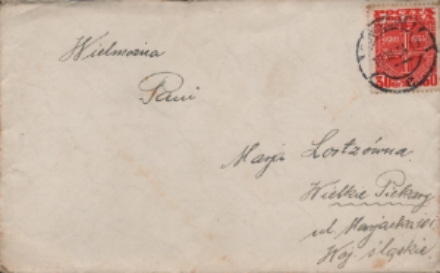 Wielmożna
Pani
Marja Lostzówna
Wielkie Piekary
ul Marjacka 101
Woj. śląskie.
50